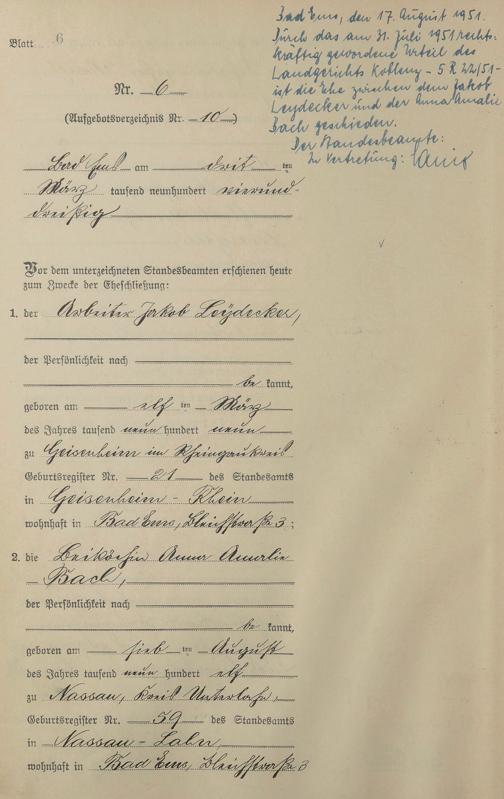 Bad Ems, den 17. August 1951.
Durch das am 31. Juli 1951 rechts-
kräftig gewordene Urteil des
Landgerichts Koblenz - 5 R 22/51 -
ist die Ehe zwischen dem Jakob
Leydecker und der Anna Amalie
Bach geschieden.
Der Standesbeamte:
In Vertretung:
Blatt 6
Nr. 6
(Aufgebotsverzeichnis Nr. 10)
Bad Ems am drit ten
März tausend neunhundert vierund-
dreißig
Vor dem unterzeichneten Standesbeamten erschienen heute
zum Zwecke der Eheschließung:
1. der Arbeiter Jakob Leydecker,
der Persönlichkeit nach
be kannt,
geboren am elf ten März
des Jahres tausend neun hundert neun
zu Geisenheim im Rheingaukreis
Geburtsregister Nr. 21 des Standesamts
in Geisenheim - Rhein
wohnhaft in Bad Ems, Bleichstraße 3;
2. die Beiköchin Anna Amalie
Bach,
der Persönlichkeit nach
be kannt,
geboren am sieb ten August
des Jahres tausend neun hundert elf
zu Nassau, Kreis Unterlahn,
Geburtsregister Nr. 59 des Standesamts
in Nassau - Lahn,
wohnhaft in Bad Ems, Bleichstraße 3